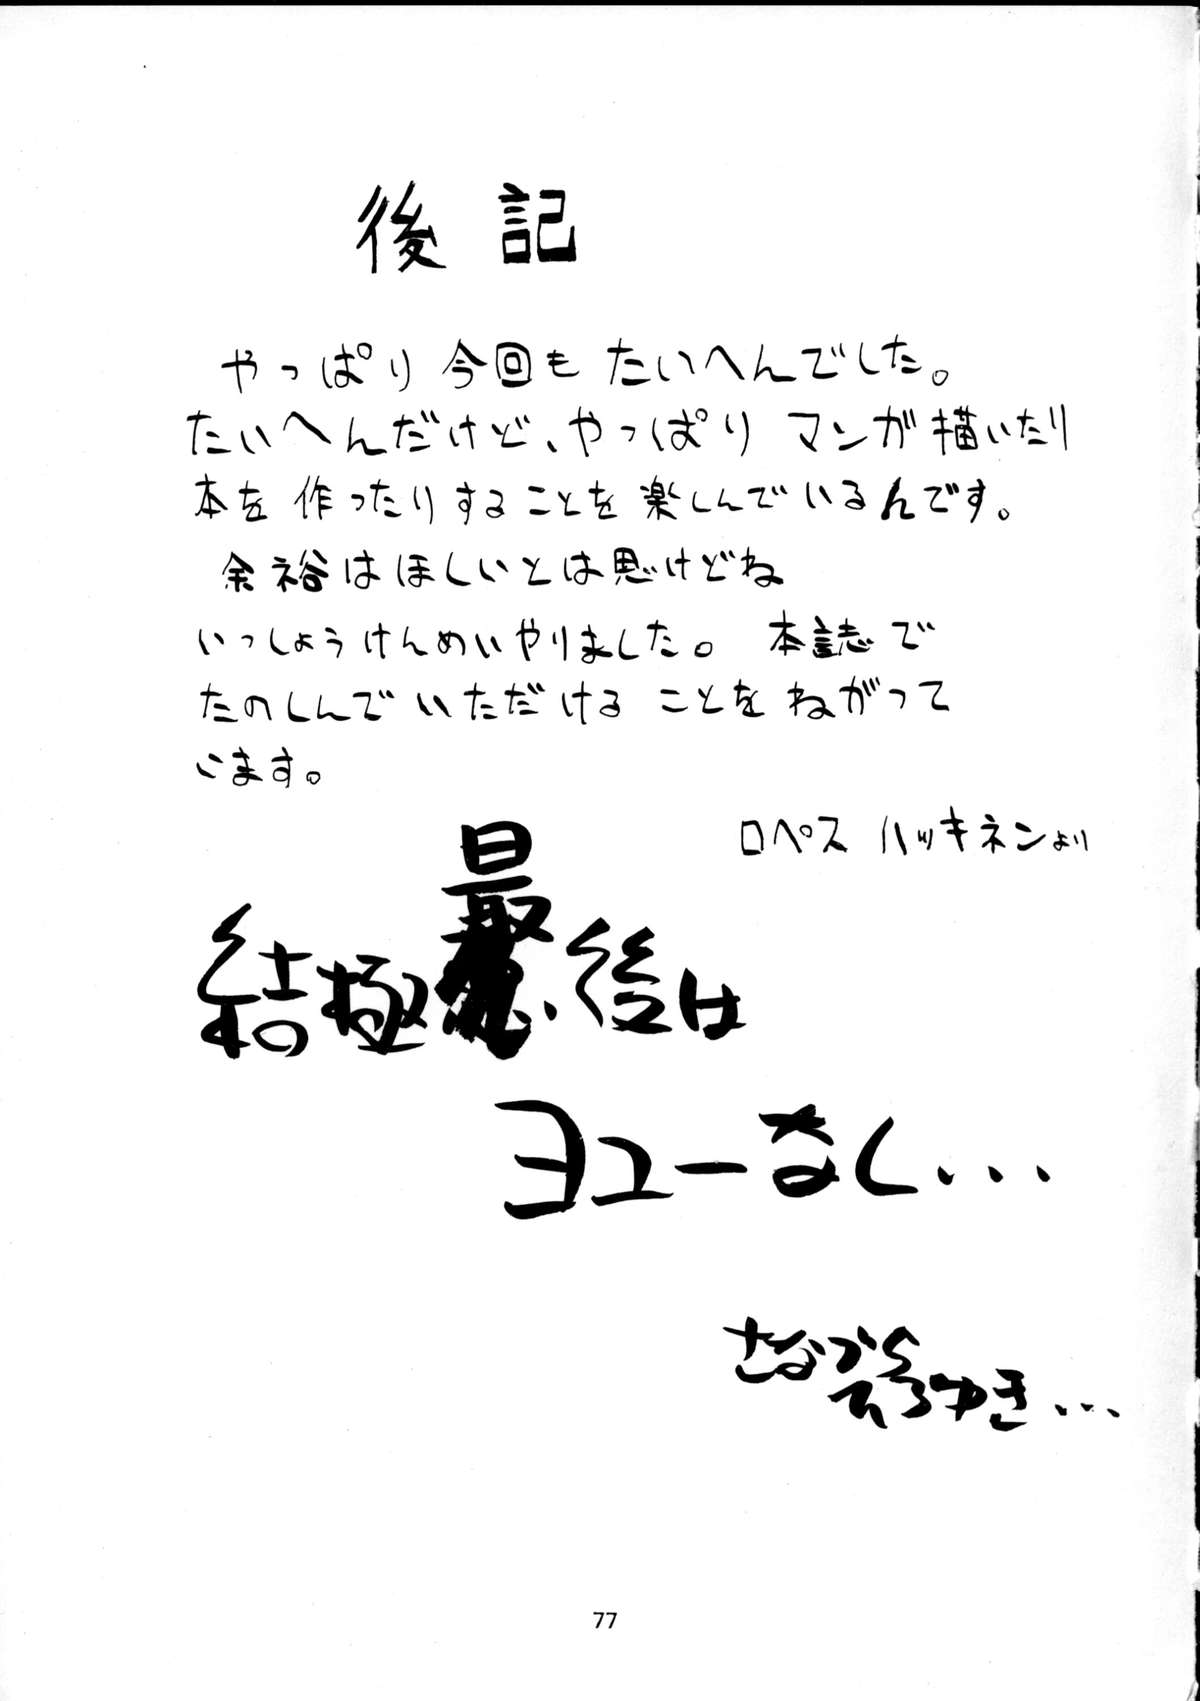 後記
やっぱり今回もたいへんでした。
たいへんだけど、やっぱりマンガ描いたり
本を作ったりすることを楽しんでいるんです。
余裕はほしいとは思けどね
いっしょうけんめいやりました。本誌で
たのしんでいただけることをねがって
います。
ロペス ハッキネンより
結極最後は
ヨユーなし...
さなづら ひろゆき...
77